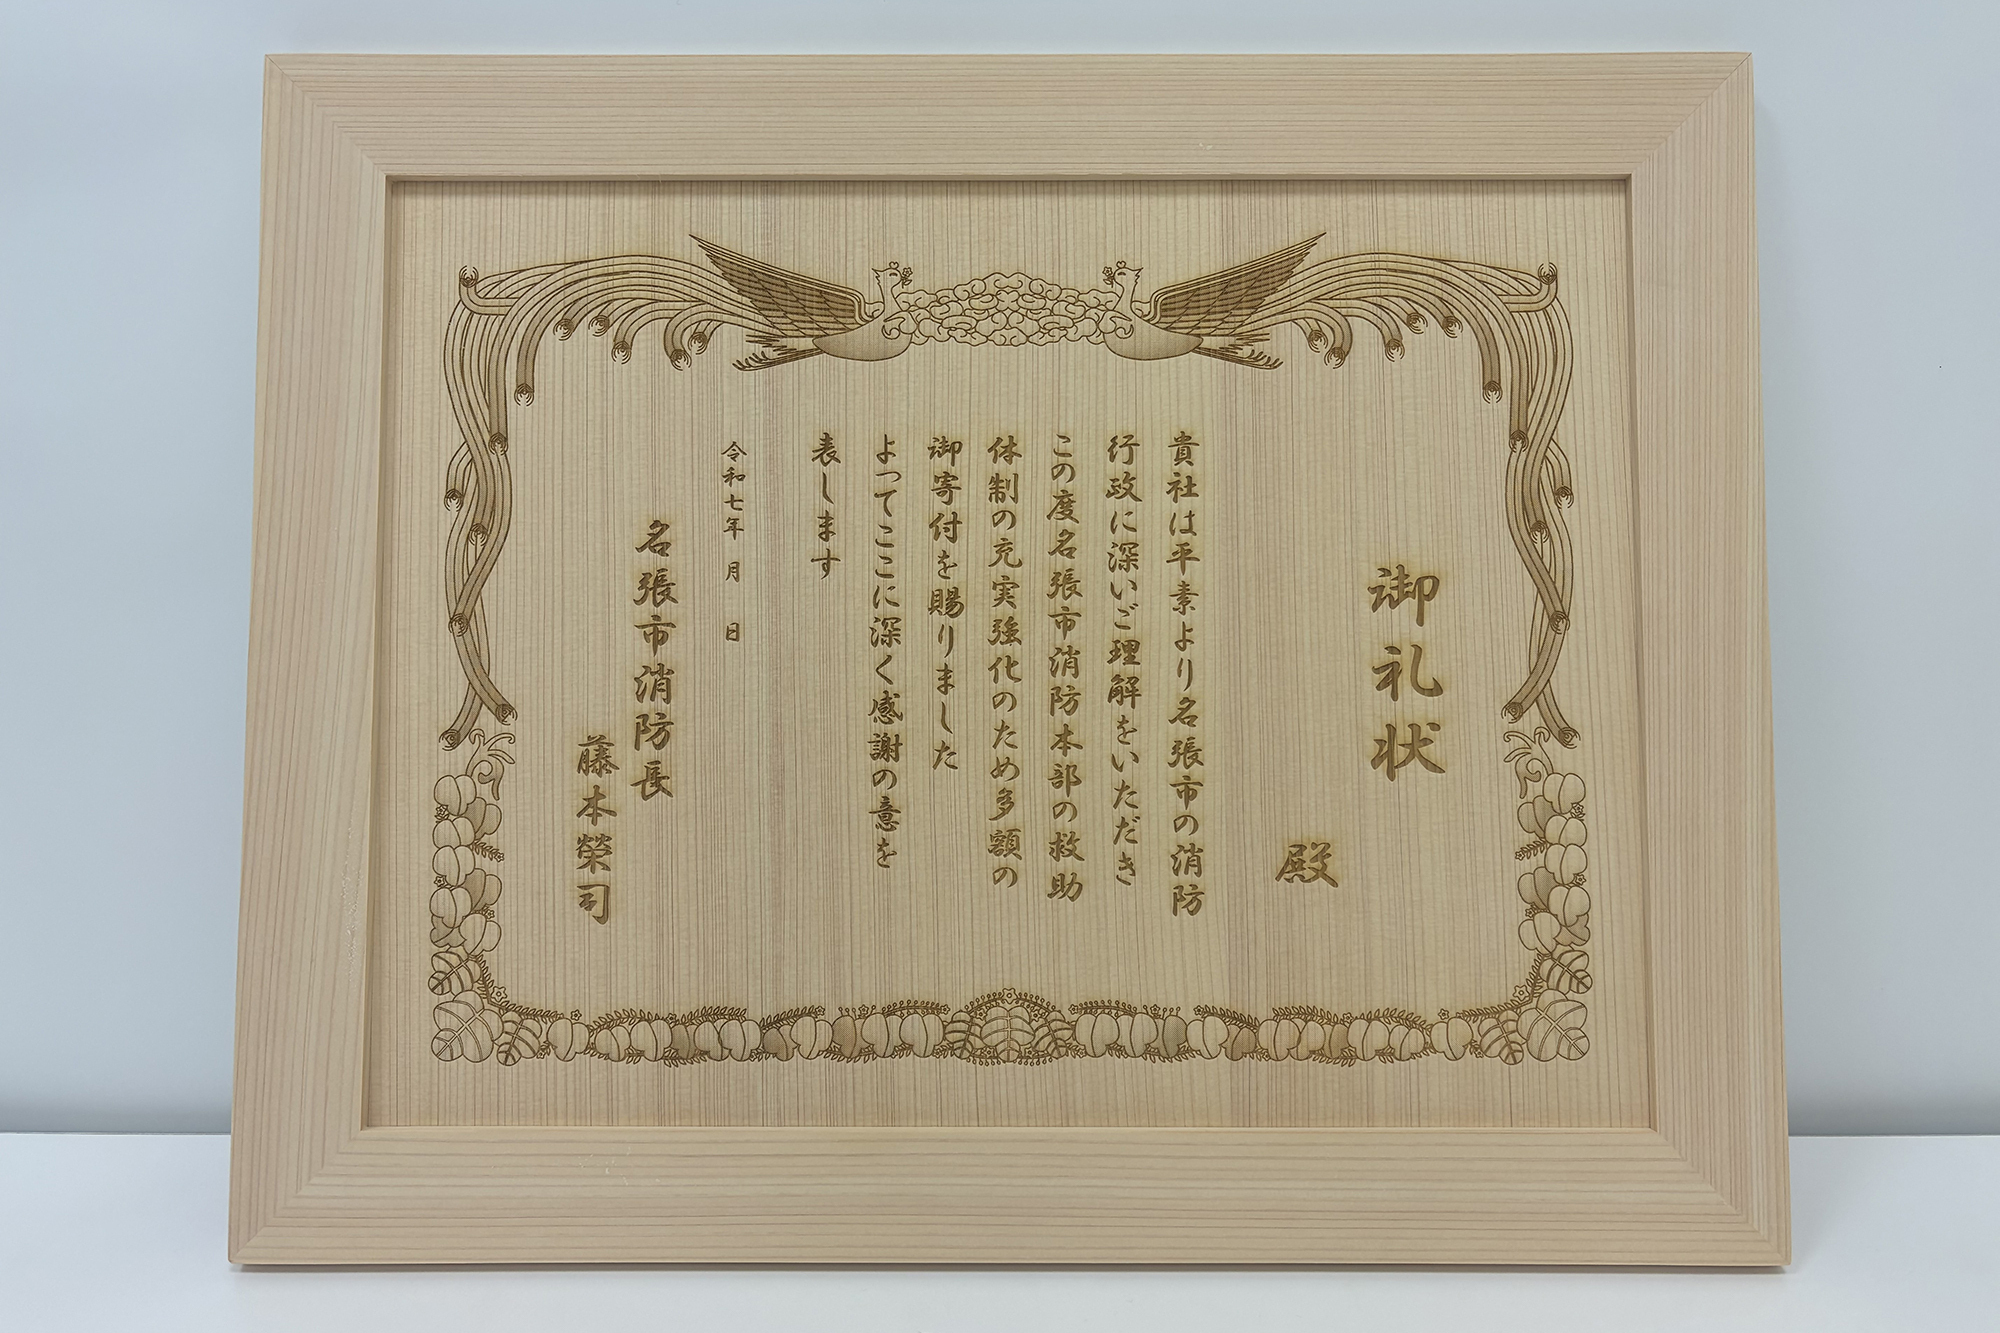 御礼状
殿
貴社は平素より名張市の消防
行政に深いご理解をいただき
この度名張市消防本部の救助
体制の充実強化のため多額の
御寄付を賜りました
よってここに深く感謝の意を
表します
令和七年 月 日
名張市消防長
藤本榮司